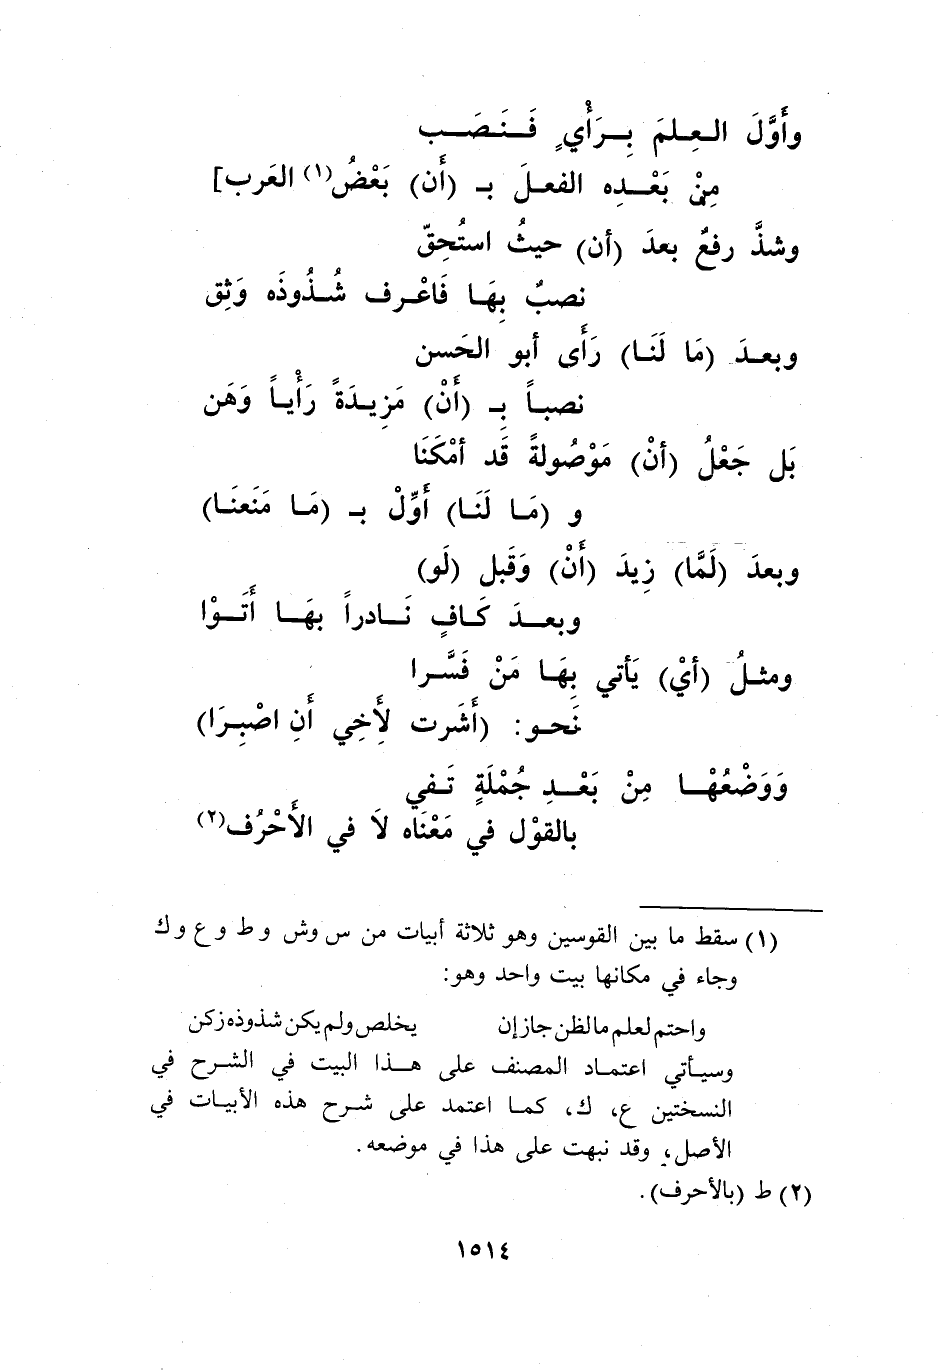 وأَوَّلَ العِلمَ بِرَأْيٍ فَنَصَب
مِنْ بَعْدِه الفعلَ بـ (أَن) بَعْضُ(١) العَرب]
وشذَّ رفعٌ بعدَ (أن) حيثُ استُحِقّ
نصبٌ بِهَا فَاعْرِف شُذُوذَه وَثِق
وبعدَ (مَا لَنَا) رَأَى أبو الحَسن
نصباً بـ (أَنْ) مَزِيدَةً رَأْياً وَهَن
بَل جَعْلُ (أنْ) مَوْصُولةً قَد أمْكَنَا
و (مَا لَنَا) أَوِّلْ بـ (مَا مَنَعنَا)
وبعدَ (لَمَّا) زِيدَ (أَنْ) وَقَبل (لَو)
وبعدَ كَافٍ نَادراً بهَا أَتَوْا
ومثلُ (أيْ) يَأتي بِهَا مَنْ فَسَّرا
نَحو: (أَشَرت لأَخِي أَنِ اصْبِرَا)
وَوَضْعُهْا مِنْ بَعْدِ جُمْلَةٍ تَفي
بالقوْل في مَعْنَاه لاَ في الأَحْرُف(٢)
(١) سقط ما بين القوسين وهو ثلاثة أبيات من س وش و ط و ع و ك
وجاء في مكانها بيت واحد وهو:
واحتم لعلم ما لظن جاز إن يخلص ولم يكن شذوذه زكن
وسيأتي اعتماد المصنف على هذا البيت في الشرح في
النسختين ع، ك، كما اعتمد على شرح هذه الأبيات في
الأصل، وقد نبهت على هذا في موضعه.
(٢) ط (بالأحرف).
١٥١٤